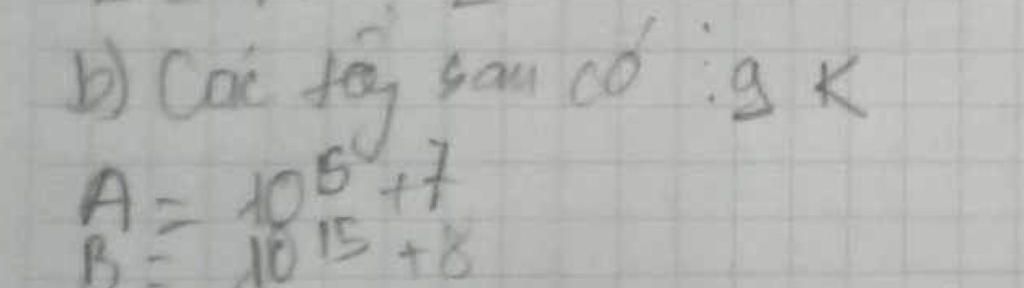 b) Các tổng sau có ⋮ 9 K
A = 10⁵ + 7
B = 10¹⁵ + 8